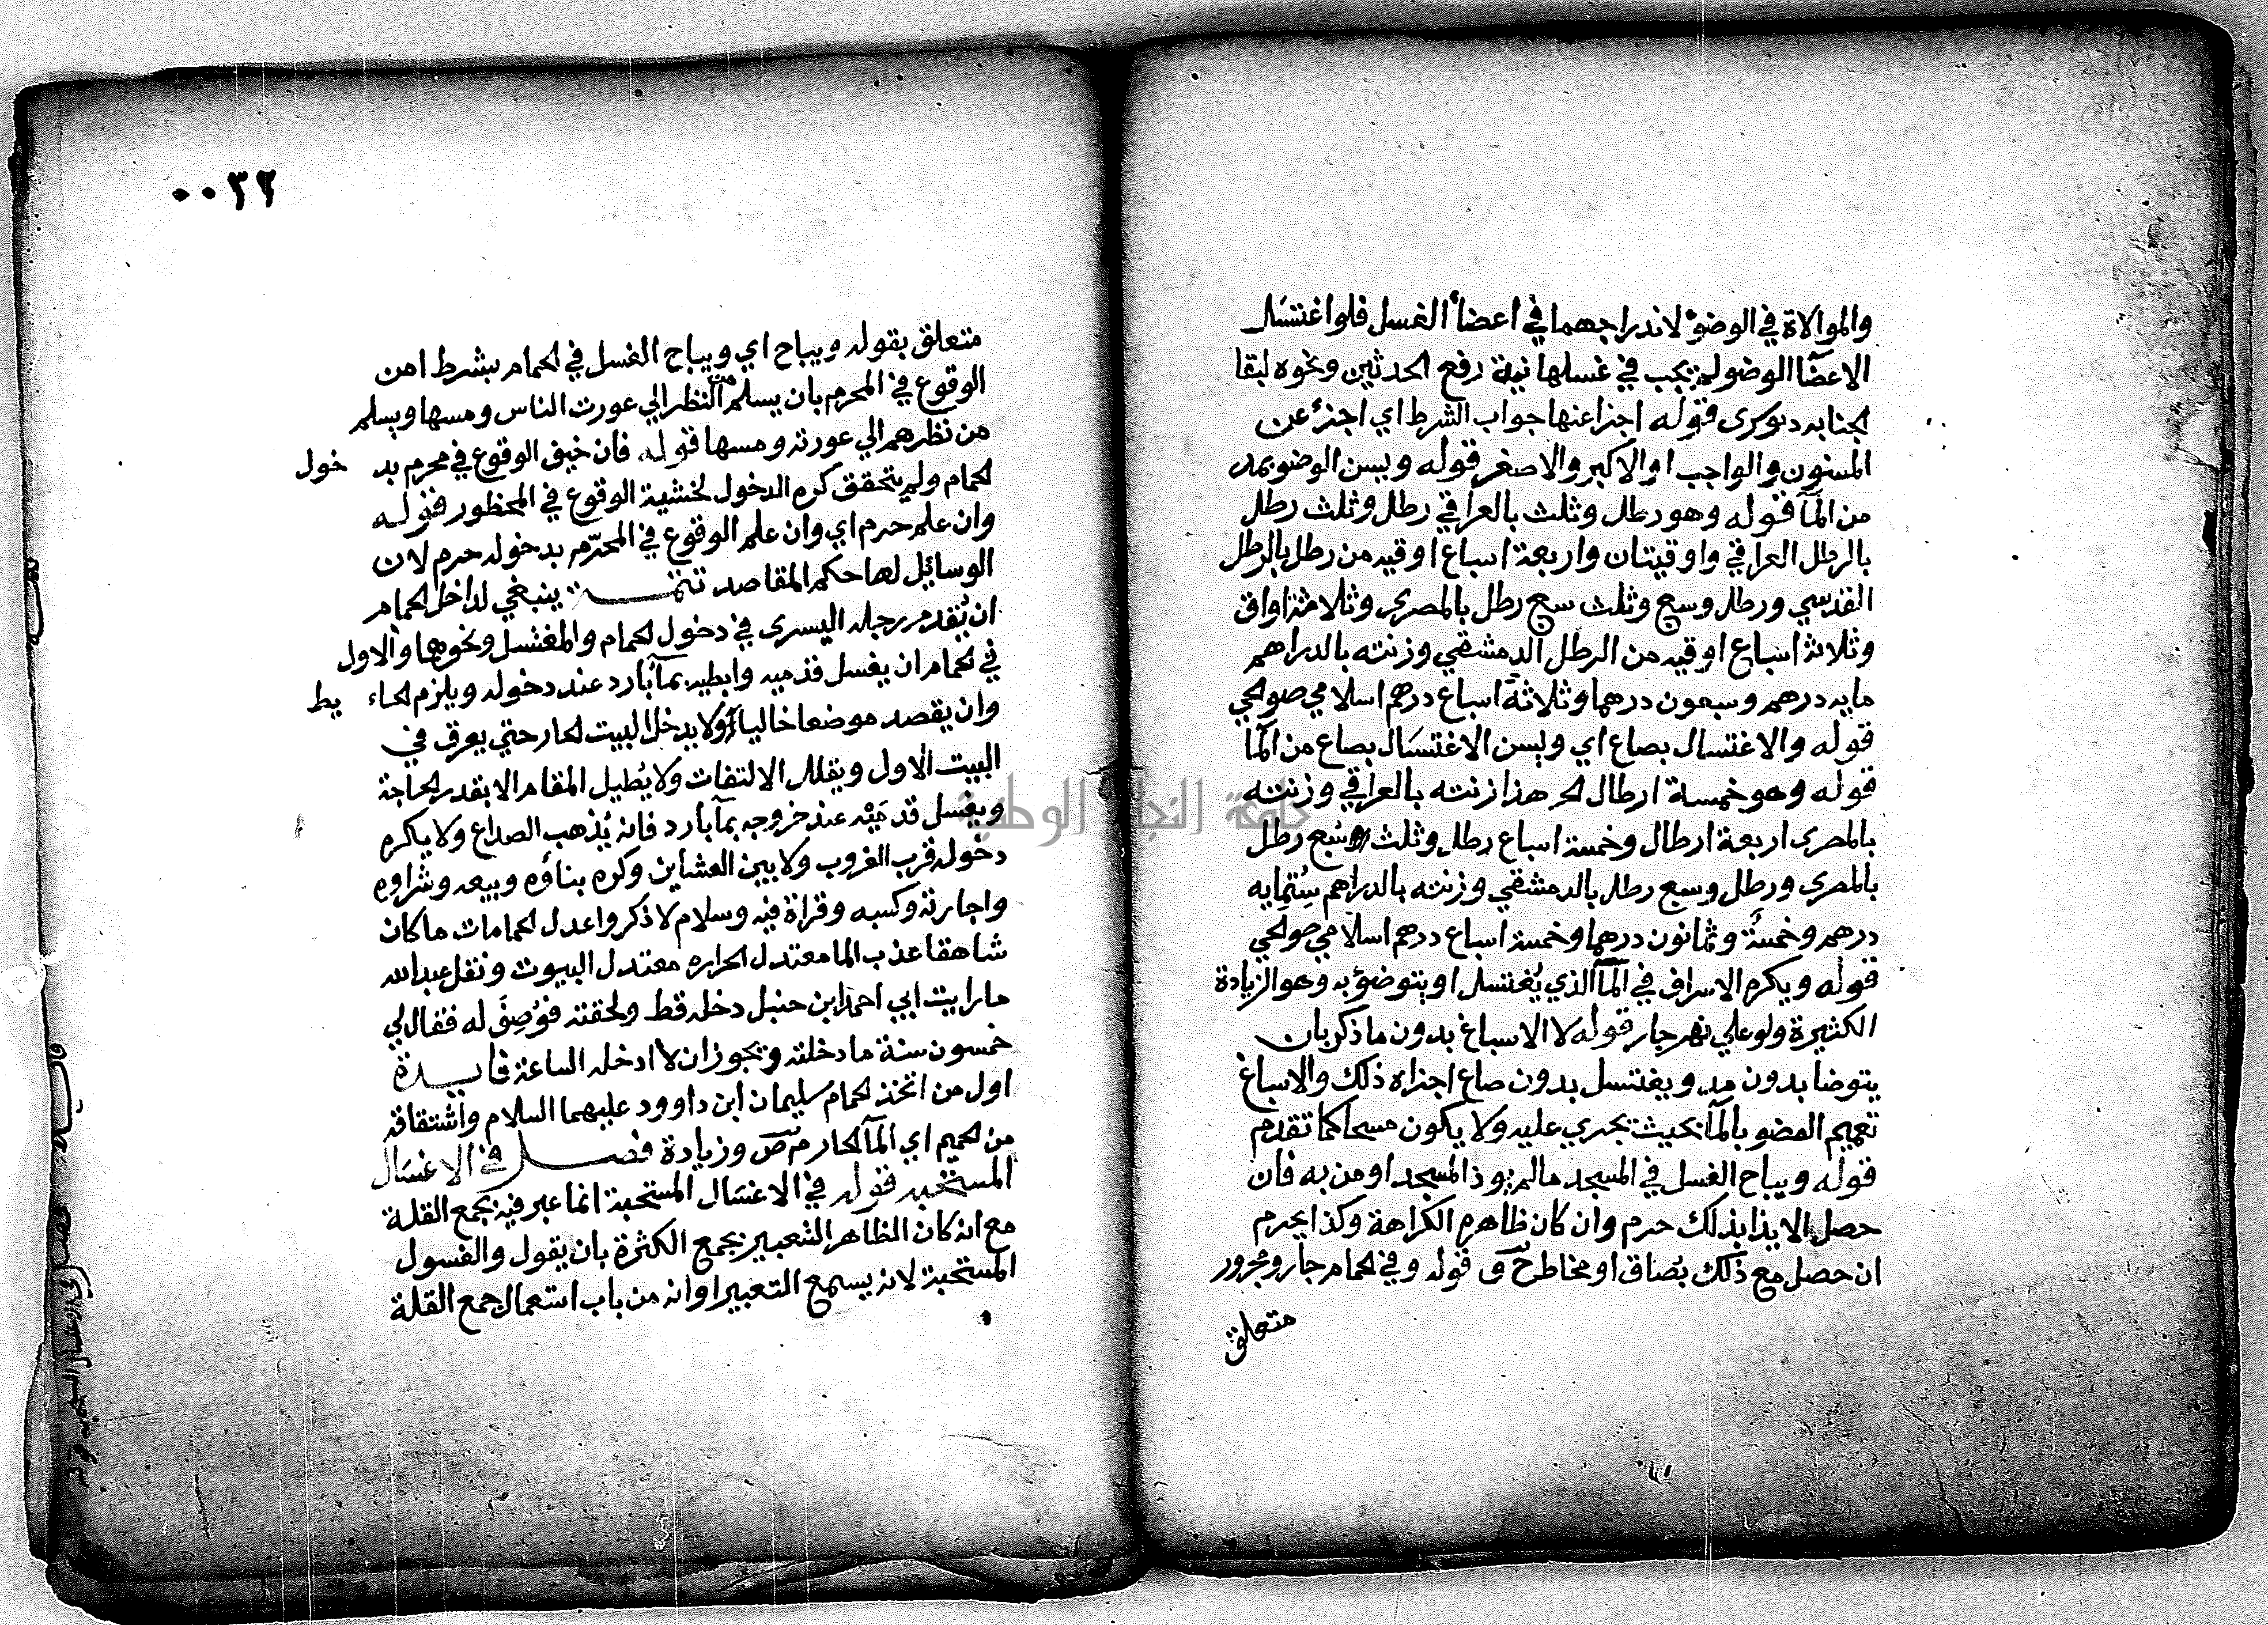 والموالاة في الوضوء لاندراجهما في اعضاء الغسل فلو اغتسل
الاعضا الوضو لم يجب في غسلها نية رفع الحدثين ونحوه لبقا
قوله اجزا عنها جواب الشرط اي اجزء عن
المسنون والواجب او الاكبر والاصغر قوله ويسن الوضو بمد
من المآ قوله وهو رطل وثلث بالعراقي رطل وثلث رطل
بالرطل العراقي واوقيتان واربعة اسباع اوقيه من رطل بالرطل
القدسي ورطل وسبع وثلث سبع رطل بالمصري وثلاثة اواق
وثلاثة اسباع اوقيه من الرطل الدمشقي وزنته بالدراهم
مايه درهم وسبعون درهما وثلاثة اسباع درهم اسلامي صولحي
قوله والاغتسال بصاع اي ويسن الاغتسال بصاع من المآ
قوله وهو خمسة ارطال الخ هذا زنته بالعراقي وزنته
بالمصري اربعة ارطال وخمسة اسباع رطل وثلث سُبع رطل
بالمصري ورطل وسبع رطل بالدمشقي وزنته بالدراهم سِتُمايه
درهم وخمسَة وثمانون درهما وخمسة اسباع درهم اسلامي صولحي
قوله ويكره الاسراف في المآ الذي يُغتسل او يتوضؤ به وهو الزيادة
الكثيرة ولو علي نهر جار قوله لا الاسباغ بدون ما ذكر بان
يتوضا بدون مد ويغتسل بدون صاع اجزاه ذلك والاسباغ
تعميم العضو بالمآ بحيث يجري عليه ولا يكون مسحا كما تقدم
قوله ويباح الغسل في المسجد ما لم يوذ المسجد او من به فان
حصل الايذا بذلك حرم وان كان ظاهره الكراهة وكذا يحرم
ان حصل مع ذلك بصاق او مخاط قوله وفي الحمام جار ومجرور
متعلق
٠٠٣٢
متعلق بقوله ويباح اي ويباح الغسل في الحمام بشرط امن
الوقوع في المحرم بان يسلم من النظر الي عورت الناس ومسها ويسلم
من نظرهم الي عورته ومسها قوله فان خيف الوقوع في محرم بد خول
الحمام ولم يتحقق كره الدخول لخشية الوقوع في المحظور قوله
وان علم حرم اي وان علم الوقوع في المحرّم بدخوله حرم لان
الوسايل لها حكم المقاصد تتمة ينبغي لداخل الحمام
ان يُقدم رجله اليسرى في دخول الحمام والمغتسل ونحوها والاول
في الحمام ان يغسل قدميه وابطيه بمآ بارد عند دخوله ويلزم الحاء يط
وان يقصد موضعا خاليا ولا يدخل البيت الحار حتي يعرق في
البيت الاول ويقلل الالتفات ولا يُطيل المقام الا بقدر الحاجة
ويغسل قدميْه عند خروجه بمآ بارد فانه يُذهب الصداع ولا يكره
دخوله قرب الغروب ولا بين العشاين وكره بناؤه وبيعه وشراوه
واجارته وكسبه وقراة فيه وسلام لا ذكر واعدل الحمامات ما كان
شاهقا عذب الما معتدل الحراره معتدل البيوت ونقل عبد الله
ما رايت ابي احمد ابن حنبل دخله قط ولحقته فوُصِفَ له فقال لي
خمسون سنة ما دخلته ويجوز ان لا ادخله الساعة فايدة
اول من اتخذ الحمام سليمان ابن داوود عليهما السلام واشتقاقه
من الحميم اي المآ الحار م ص وزيادة فصل في الاغسال
المستحبه قوله في الاغسال المستحبة انما عبر فيه بجمع القلة
مع انه كان الظاهر التعبير بجمع الكثرة بان يقول والغسول
المستحبة لانه يسمع التعبير او انه من باب استعمال جمع القلة
جامعة النجاح الوطنية